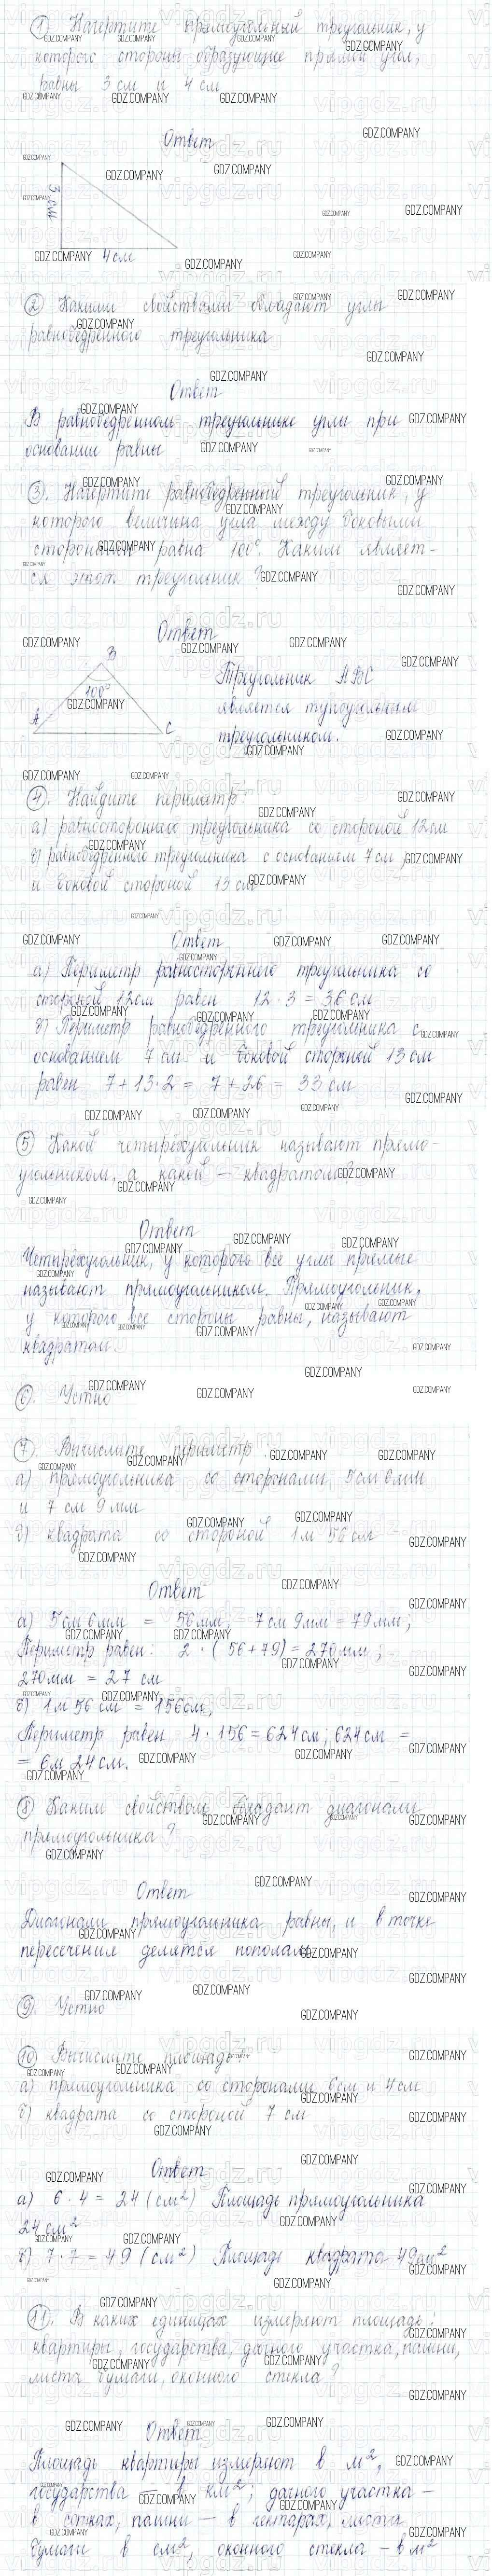 1 Начертите прямоугольный треугольник, у
которого стороны образующие прямой угол,
равны 3 см и 4 см
Ответ
3 см
4 см
2 Какими свойствами обладают углы
равнобедренного треугольника
Ответ
В равнобедренном треугольнике углы при
основании равны
3. Начертите равнобедренный треугольник, у
которого величина угла между боковыми
сторонами равна 100°. Каким являет-
ся этот треугольник?
Ответ
B
100°
A
C
Треугольник ABC
является тупоугольным
треугольником.
4. Найдите периметр:
а) равностороннего треугольника со стороной 12 см
б) равнобедренного треугольника с основанием 7 см
и боковой стороной 13 см
Ответ
а) Периметр равностороннего треугольника со
стороной 12 см равен 12 · 3 = 36 см
б) Периметр равнобедренного треугольника с
основанием 7 см и боковой стороной 13 см
равен 7 + 13 · 2 = 7 + 26 = 33 см
5 Какой четырёхугольник называют прямо-
угольником, а какой — квадратом?
Ответ
Четырёхугольник, у которого все углы прямые
называют прямоугольником. Прямоугольник,
у которого все стороны равны, называют
квадратом
6. Устно
7. Вычислите периметр
а) прямоугольника со сторонами 5 см 6 мм
и 7 см 9 мм
б) квадрата со стороной 1 м 56 см
Ответ
а) 5 см 6 мм = 56 мм; 7 см 9 мм = 79 мм;
Периметр равен: 2 · (56 + 79) = 270 мм;
270 мм = 27 см
б) 1 м 56 см = 156 см;
Периметр равен 4 · 156 = 624 см; 624 см =
= 6 м 24 см.
8 Каким свойством обладают диагонали
прямоугольника?
Ответ
Диагонали прямоугольника равны, и в точке
пересечения делятся пополам
9. Устно
10 Вычислите площадь
а) прямоугольника со сторонами 6 см и 4 см
б) квадрата со стороной 7 см
Ответ
а) 6 · 4 = 24 (см²) Площадь прямоугольника
24 см²
б) 7 · 7 = 49 (см²) Площадь квадрата 49 см²
11. В каких единицах измеряют площадь:
квартиры, государства, дачного участка, пашни,
листа бумаги, оконного стекла?
Ответ
Площадь квартиры измеряют в м²,
государства — в км²; дачного участка —
в сотках, пашни — в гектарах, листа
бумаги в см², оконного стекла — в м²